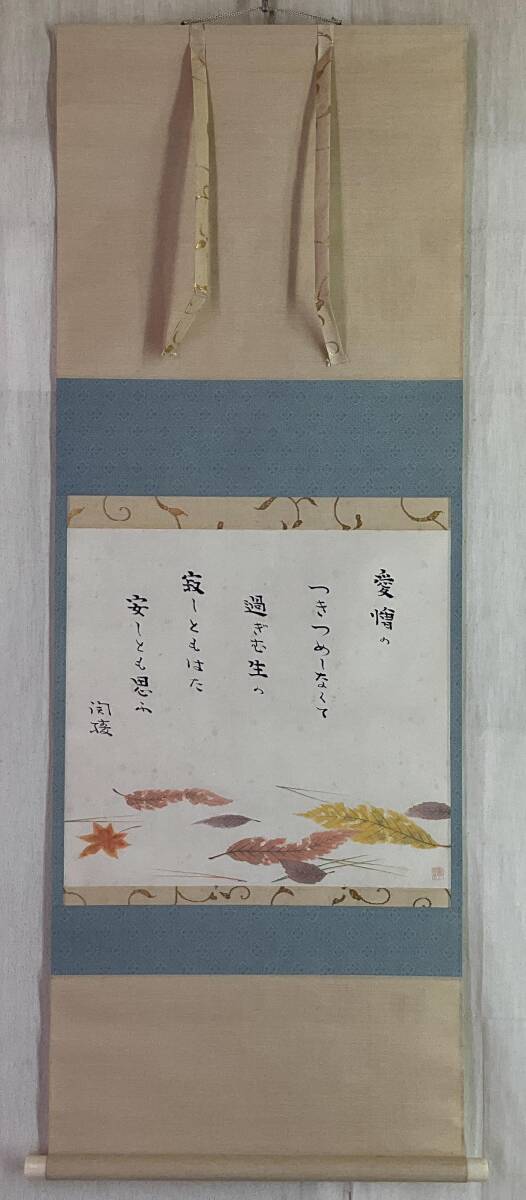 愛憎の
つきつめしなくて
過ぎむ生の
寂しともはた
安しとも思ふ